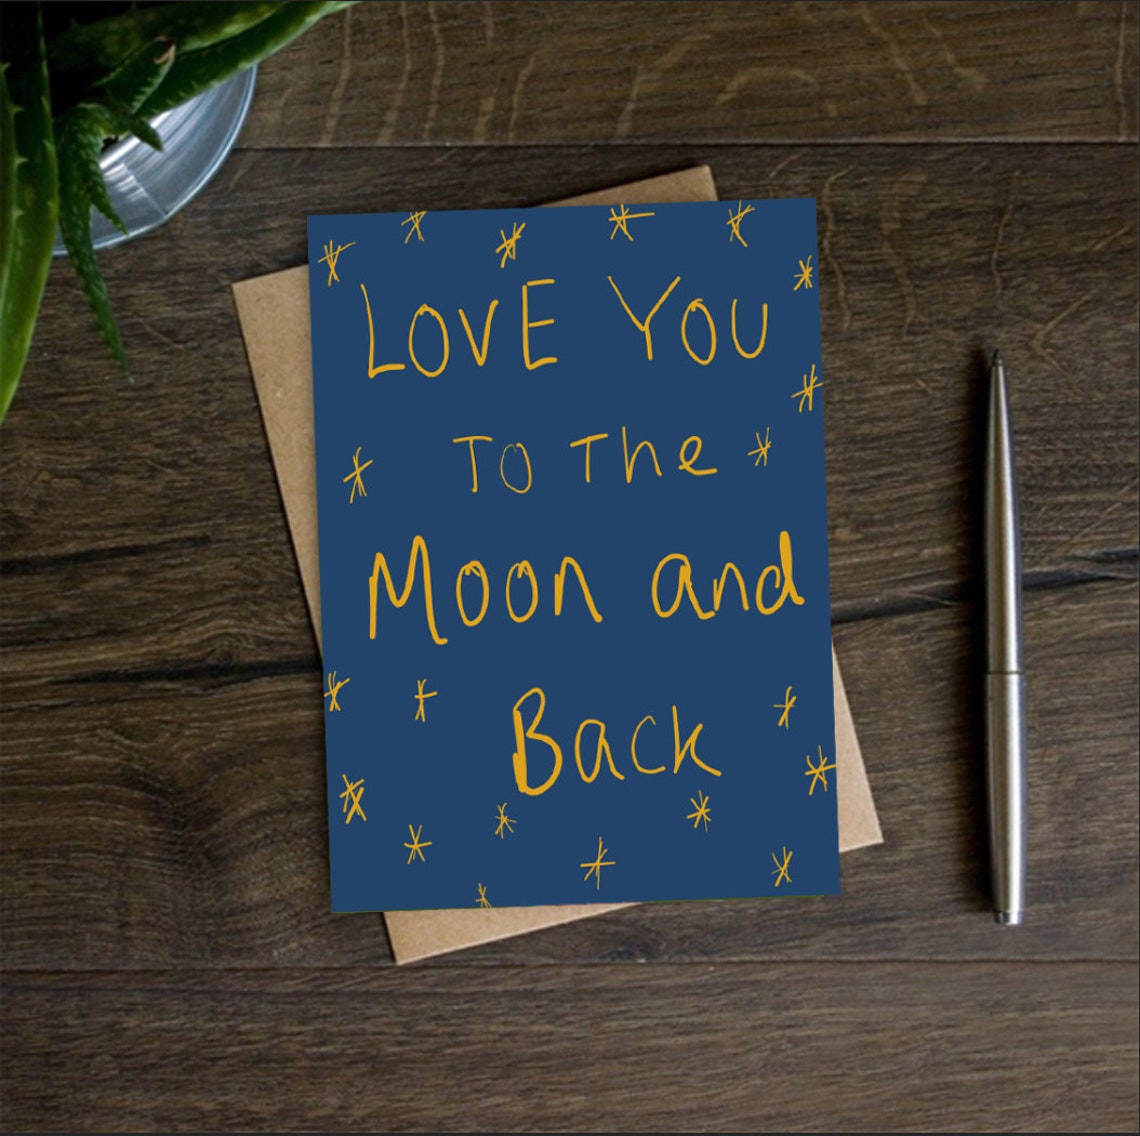 LOVE YOU
TO The
Moon and
Back